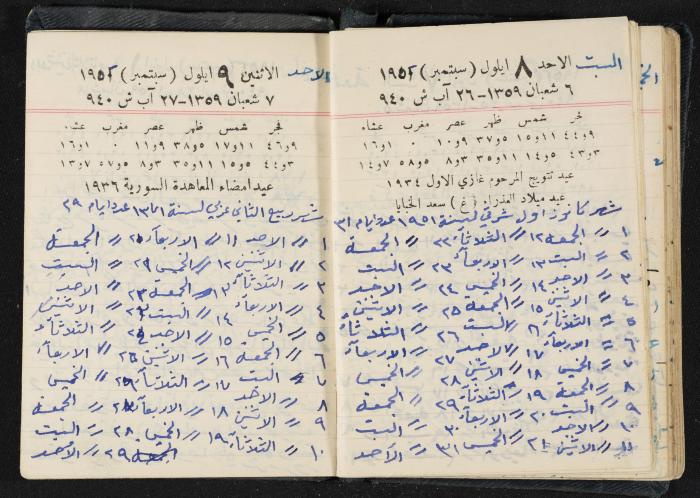 السبت
الاحد ٨ ايلول (سبتمبر) ١٩٥٢
٦ شعبان ١٣٥٩-٢٦ آب ش ٩٤٠
فجر شمس ظهر عصر مغرب عشاء
٩و٤٤ ١١و١٥ ٥و٣٧ ٩و١٠ ٠و ١و١٦
٣و٤٣ ٥و١٤ ١١و٣٥ ٣و٨ ٥و٥٨ ٧و١٤
عيد تتويج المرحوم غازي الاول ١٩٣٤
عيد ميلاد العذراء (غ) سعد الخبايا
شهر كانون اول شرقي لسنة ١٩٥١ عدد ايام ٣١
١ // الجمعة ١٢ // الثلاثاء ٢٢ // الجمعة
٢ // السبت ١٣ // الاربعاء ٢٣ // السبت
٣ // الاحد ١٤ // الخميس ٢٤ // الاحد
٤ // الاثنين ١٥ // الجمعة ٢٥ // الاثنين
٥ // الثلاثاء ١٦ // السبت ٢٦ // الثلاثاء
٦ // الاربعاء ١٧ // الاحد ٢٧ // الاربعاء
٧ // الخميس ١٨ // الاثنين ٢٨ // الخميس
٨ // الجمعة ١٩ // الثلاثاء ٢٩ // الجمعة
٩ // السبت ٢٠ // الاربعاء ٣٠ // السبت
١٠ // الاحد
١١ // الاثنين ٢١ // الخميس ٣١ // الاحد
الاحد
الاثنين ٩ ايلول (سبتمبر) ١٩٥٢
٧ شعبان ١٣٥٩-٢٧ آب ش ٩٤٠
فجر شمس ظهر عصر مغرب عشاء
٩و٤٦ ١١و١٧ ٥و٣٨ ٩و١١ ٠و ١و١٦
٣و٤٤ ٥و١٥ ١١و٣٥ ٣و٨ ٥و٥٧ ٧و١٣
عيد امضاء المعاهدة السورية ١٩٣٦
شهر ربيع الثاني عربي لسنة ١٣٧١ عدد ايام ٢٩
١ // الاحد ١١ // الاربعاء // الجمعة
٢ // الاثنين ١٢ // الخميس // السبت
٣ // الثلاثاء ١٣ // الجمعة // الاحد
٤ // الاربعاء ١٤ // السبت // الاثنين
٥ // الخميس ١٥ // الاحد // الثلاثاء
٦ // الجمعة ١٦ // الاثنين // الاربعاء
٧ // السبت ١٧ // الثلاثاء // الخميس
٨ // الاحد
٩ // الاثنين ١٨ // الاربعاء // الجمعة
١٠ // الثلاثاء ١٩ // الخميس ٢٨ // السبت
// الجمعة ٢٩ // الاحد